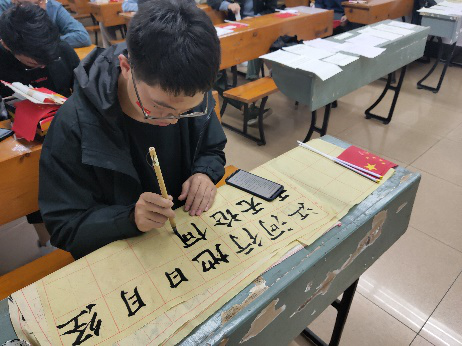 江河行地日月经
天